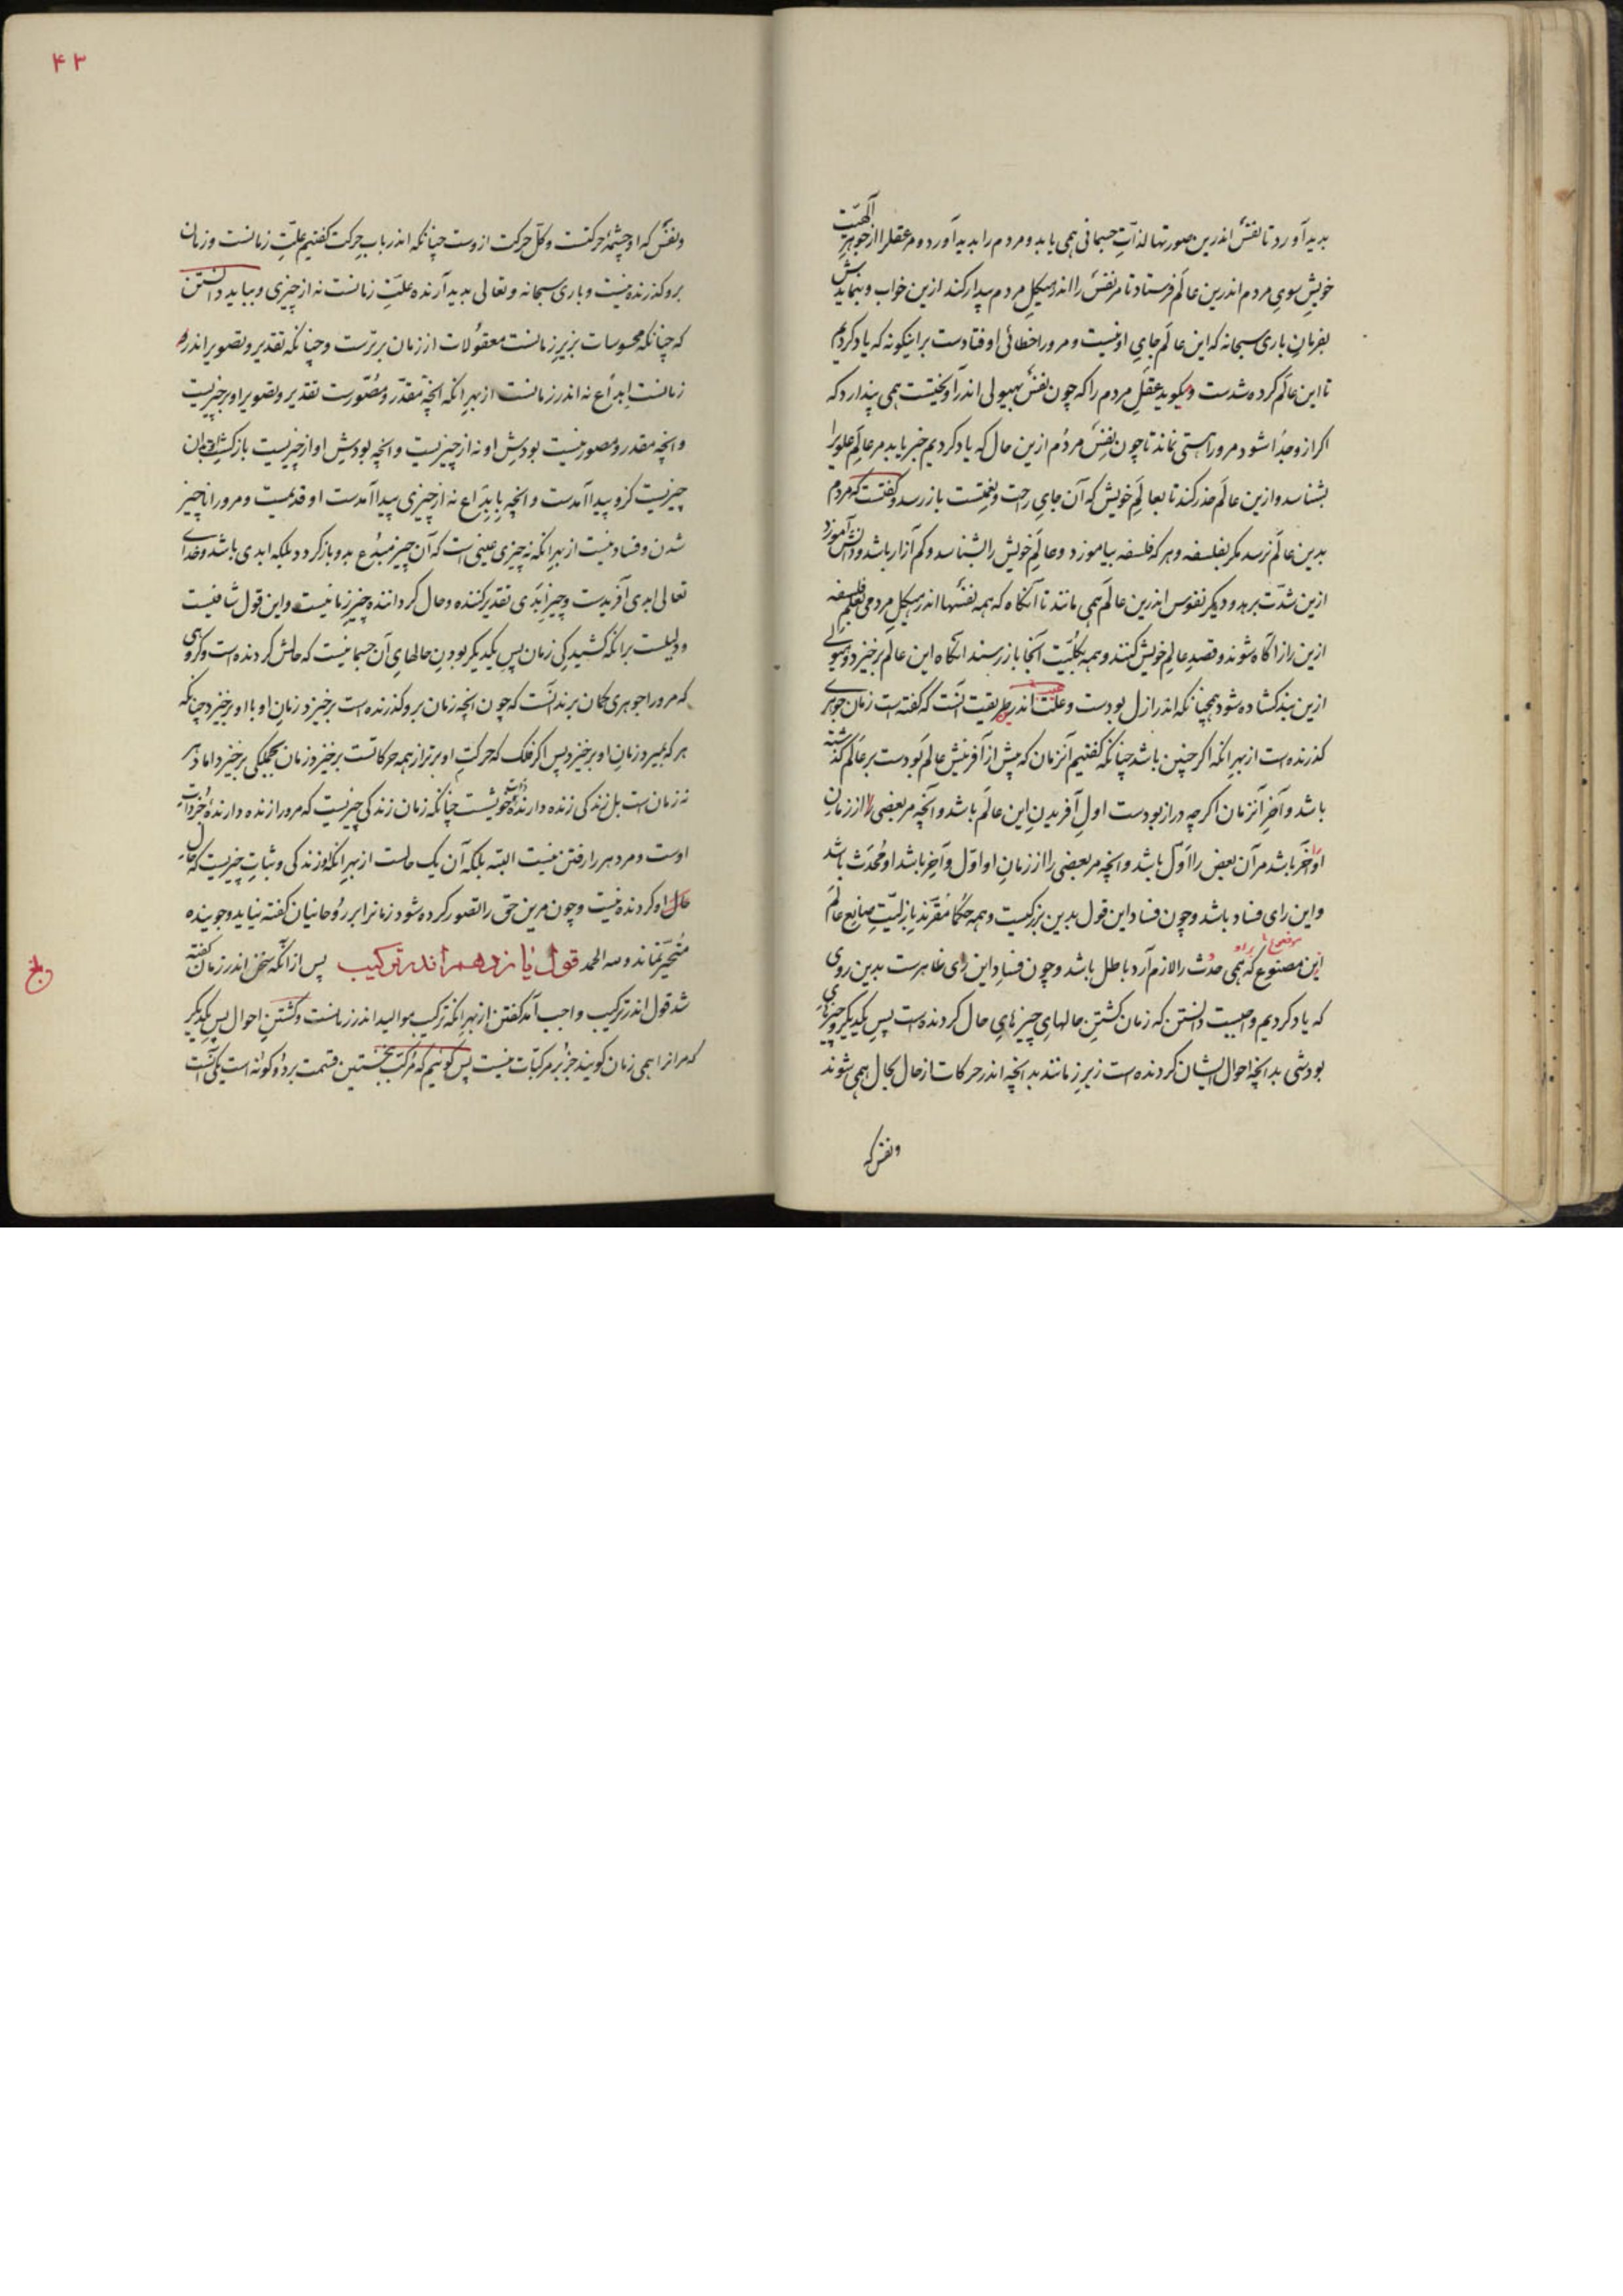 بدید آورد تا نفس اندرین صورتها لذات جسمانی همی یابد و مردم را بدید آورد و مر عقل را از جوهر الهیت
خویش سوی مردم اندرین عالم فرستاد تا مر نفس را اندر هیکل مردم بیدار کند ازین خواب و بنمایدش
بفرمان باری سبحانه که این عالم جای او نیست و مرورا خطائی اوفتادست براینگونه که یاد کردیم
تا این عالم کرده شدست و میکوید عقل مردم را که چون نفس بهیولی اندر آویختست همی پندارد که
اکر ازو جدا شود مرورا هستی نماند تا چون نفس مردم ازین حال که یاد کردیم خبر یابد مر عالم علویرا
بشناسد و ازین عالم حذر کند تا بعالم خویش که آن جای راحت و نعمتست باز رسد و کفتست که مردم
بدین عالم نرسد مکر بفلسفه و هر که فلسفه بیاموزد و عالم خویش را بشناسد و کم آزار باشد و دانش آموزد
ازین شدت برهد و دیکر نفوس اندرین عالم همی مانند تا آنکاه که همه نفسها اندر هیکل مردمی بعلم فلسفه
ازین راز آکاه شوند و قصد عالم خویش کنند و همه بکلیت آنجا باز رسند انکاه این عالم برخیزد و هیولی
ازین بند کشاده شود همچنانکه اندر ازل بودست و علت اندر طریقیت آنست که کفته است زمان جوهری
کذرنده است از بهر انکه اکر چنین باشد چنانکه کفتیم آنزمان که پیش از آفرینش عالم بودست بر عالم کذشته
باشد و آخر آنزمان اکرچه دراز بودست اول آفریدن این عالم باشد و آنچه مر بعضی را از زمان
او آخر باشد مر آن بعض را اول باشد و انچه مر بعضی را از زمان او اول و آخر باشد او محدث باشد
و این رای فساد باشد و چون فساد این قول بدین بزرکیست و همه حکما مقرند بازلیت صانع عالم
این مصنوع که همی حدث را لازم آرد باطل باشد و چون فساد این رای ظاهرست بدین روی
که یاد کردیم واجبست دانستن که زمان کشتن حالهای چیزهای حال کردنده است پس یکدیکر و چیزهای
بودشی بدانچه احوال ایشان کردنده است زیر زمانند بدانچه اندر حرکات از حال بحال همی شوند
و نفس که
۴۳
و نفس که او چشمه حرکتست و کل حرکت ازوست چنانکه اندر باب حرکت کفتیم علت زمانست و زمان
برو کذرنده نیست و باری سبحانه و تعالی بدید آرنده علت زمانست نه از چیزی و بباید دانستن
که چنانکه محسوسات بزیر زمانست معقولات از زمان برترست و چنانکه تقدیر و تصویر اندر
زمانست ابداع نه اندر زمانست از بهر انکه انچه مقدر و مصورست تقدیر و تصویر او بر چیزیست
و انچه مقدر و مصور نیست بودش او نه از چیزیست و انچه بودش او از چیزیست باز کشتن او بدان
چیزیست کزو پیدا آمدست و انچه بابداع نه از چیزی پیدا آمدست او قدیمست و مرورا ناچیز
شدن و فساد نیست از بهر انکه نه چیزی عینی است که آن چیز مبدع بدو باز کردد بلکه ابدی باشد و خدای
تعالی ابدی آفریدست و چیز ابدی تقدیر کننده و حال کرداننده چیز زمانیست و این قول شافیست
و دلیلست برانکه کشیدکی زمان پس یکدیکر بودن حالهای آن جسمانیست که حالش کردنده است و کروهی
که مرورا جوهری کمان برند آنست که چون انچه زمان برو کذرنده است برخیزد زمان او با او برخیزد چنانکه
هر که بمیرد زمان او برخیزد پس اکر فلک که حرکت او برتر از همه حرکاتست برخیزد زمان بجملکی برخیزد اما دهر
نه زمان است بل زندکی زنده دارنده ذات خویشست چنانکه زمان زندکی چیزیست که مرورا زنده دارنده جز ذات
اوست و مر دهر را رفتن نیست البته بلکه آن یک حالست از بهر انکه او زندکی و ثبات چیزیست که حال
حال او کردنده نیست و چون مرین حق را تصور کرده شود زمانرا بر روحانیان کفته نیاید و جوینده
متحیر نماند و لله الحمد قول یازدهم اندر ترکیب پس از آنکه سخن اندر زمان کفته
شد قول اندر ترکیب واجب آمد کفتن از بهر انکه ترکیب موالید اندر زمانست و کشتن احوال پس یکدیکر
که مر انرا همی زمان کویند جز بر مرکبات نیست پس کوئیم که مرکب بنخستین قسمت بر دو کونه است یکی آنست